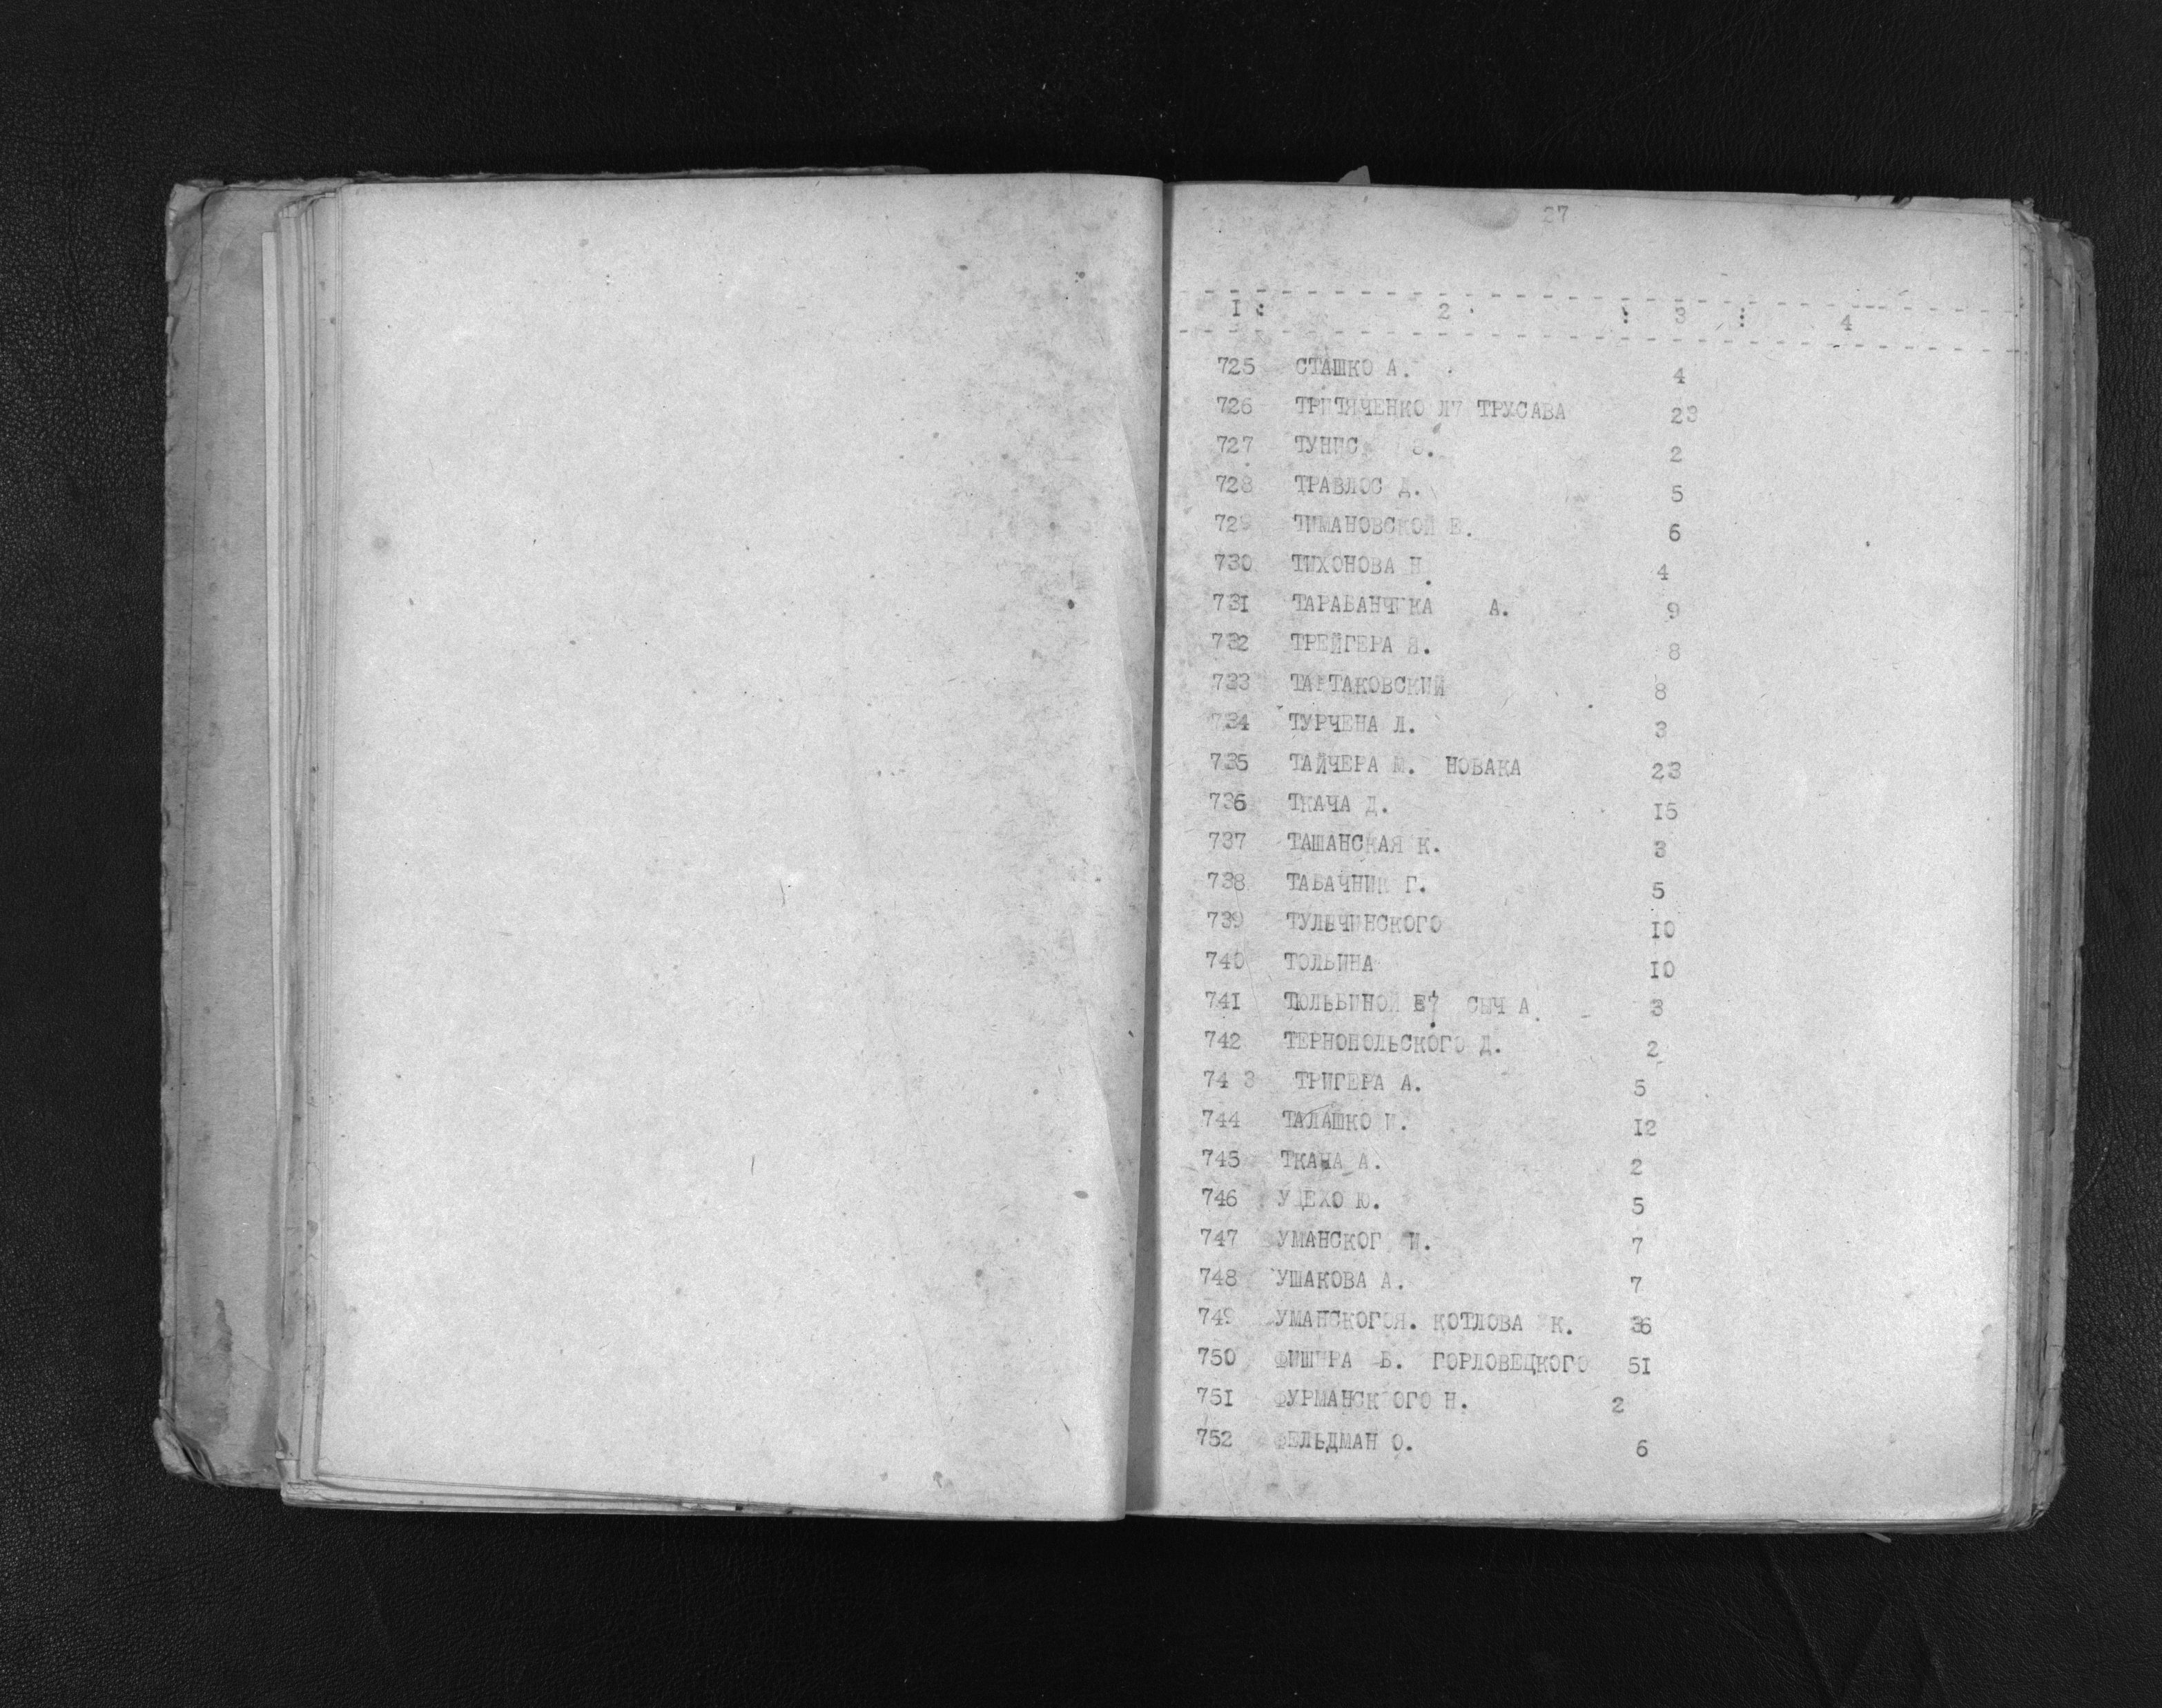 27
I : 2 : 3 : 4
725 СТАШКО А. 4
726 ТРИТЯЧЕНКО Л7 ТРУСАВА 23
727 ТУНИС З. 2
728 ТРАВЛОС Д. 5
729 ТИМАНОВСКОЙ Е. 6
730 ТИХОНОВА Н. 4
73I ТАРАБАНЧИКА А. 9
732 ТРЕЙГЕРА Я. 8
733 ТАРТАКОВСКИЙ 8
734 ТУРЧЕНА Л. 3
735 ТАЙЧЕРА М. НОВАКА 23
736 ТКАЧА Д. I5
737 ТАШАНСКАЯ К. 3
738 ТАБАЧНИК Г. 5
739 ТУЛЬЧИНСКОГО I0
740 ТОЛЬПИНА I0
74I ТЮЛЬБИНОЙ Е7 СЫЧ А. 3
742 ТЕРНОПОЛЬСКОГО Д. 2
74 3 ТРИГЕРА А. 5
744 ТАЛАШКО И. I2
745 ТКАЧА А. 2
746 УДЕХО Ю. 5
747 УМАНСКОГ И. 7
748 УШАКОВА А. 7
749 УМАНСКОГОЯ. КОТЛОВА К. 36
750 ФИШЕРА Б. ГОРЛОВЕЦКОГО 5I
75I ФУРМАНСК ОГО Н. 2
752 ФЕЛЬДМАН О. 6